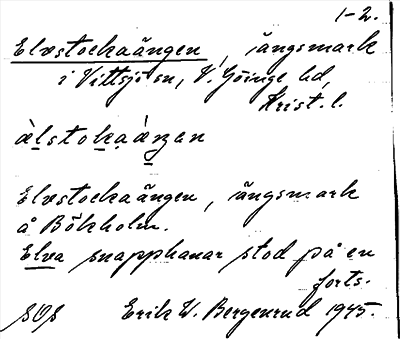 1-2.
Elvstockaängen, ängsmark
i Vittsjö sn, V. Göinge hd,
Krist. l.
àlstokaàŋan
Elvstockaängen, ängsmark
å Bökholm.
Elva snapphanar stod på en
forts.
SOS Erik W. Bergenrud 1945.